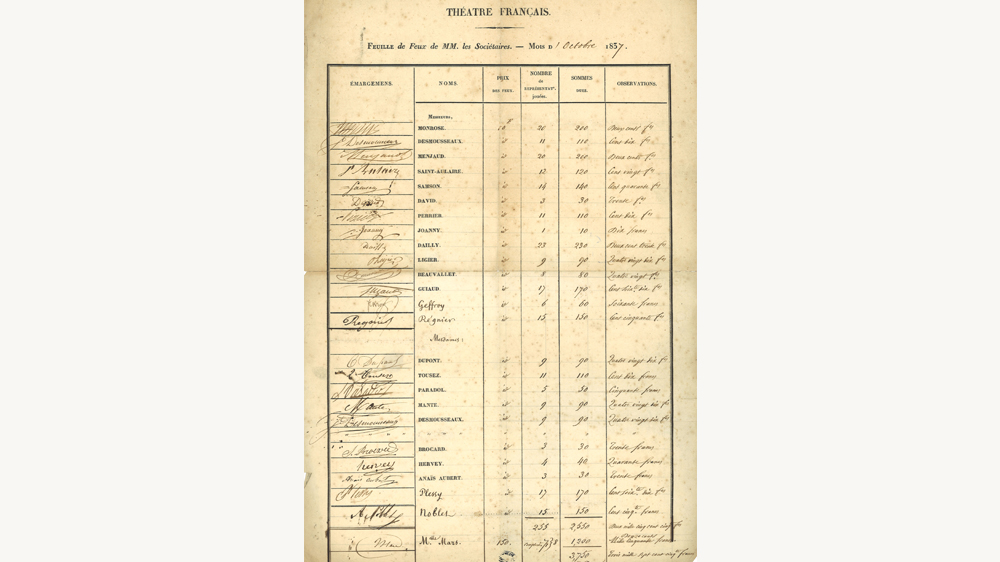 THÉATRE FRANÇAIS.
FEUILLE de Feux de MM. les Sociétaires. — MOIS D' Octobre 1837.
ÉMARGEMENS. NOMS. PRIX DES FEUX. NOMBRE de REPRÉSENTATˢ jouées. SOMMES DUES. OBSERVATIONS.
Messieurs,
MONROSE. 10 f 20 200 Deux cent f.cs
Desmousseaux DESMOUSSEAUX. id 11 110 Cent dix f.cs
Menjaud MENJAUD. id 20 200 Deux cent f.cs
SAINT-AULAIRE. id 12 120 Cent vingt f.cs
Samson SAMSON. id 14 140 Cent quarante f.cs
David DAVID. id 3 30 Trente f.cs
PERRIER. id 11 110 Cent dix f.cs
Joanny JOANNY. id 1 10 Dix francs
Dailly DAILLY. id 23 230 Deux cent trente f.cs
Ligier LIGIER. id 9 90 Quatre vingt dix f.cs
BEAUVALLET. id 8 80 Quatre vingt f.cs
Guiaud GUIAUD. id 17 170 Cent soix.te dix f.cs
Geffroy id 6 60 Soixante francs
Regnier Régnier id 15 150 Cent cinquante f.cs
Mesdames :
Dupont DUPONT. id 9 90 Quatre vingt dix f.cs
TOUSEZ. id 11 110 Cent dix francs
Paradol PARADOL. id 5 50 Cinquante francs
Mante MANTE. id 9 90 Quatre vingt dix f.cs
Desmousseaux DESMOUSSEAUX. id 9 90 Quatre vingt dix f.cs
Brocard BROCARD. id 3 30 Trente francs
Hervey HERVEY. id 4 40 Quarante francs
Anais Aubert ANAÏS AUBERT. id 3 30 Trente francs
Plessy Plessy id 17 170 Cent soix.te dix f.cs
A. Noblet Noblet id 15 150 Cent cinq.te francs
255 2550 Deux mille cinq cent cinq.te f.cs
Mars M.elle Mars. 150. 8 1,200
3,750 Trois mille sept cent cinq.te francs